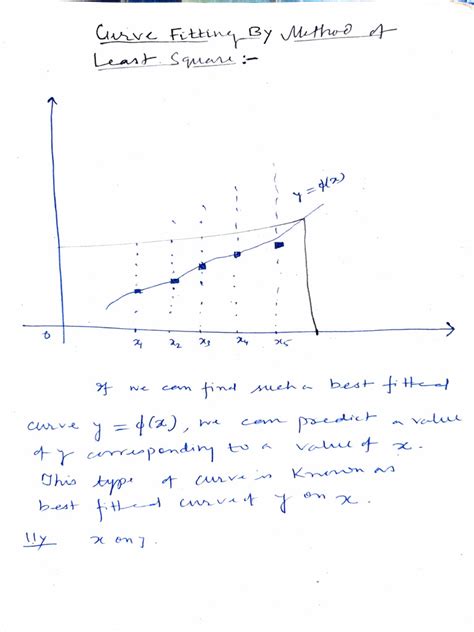 Curve Fitting By Method of
Least Square :-
y = ϕ(x)
0
x₁ x₂ x₃ x₄ x₅
If we can find such a best fitted
curve y = ϕ(x), we can predict a value
of y corresponding to a value of x.
This type of curve is known as
best fitted curve of y on x.
lly x on y.